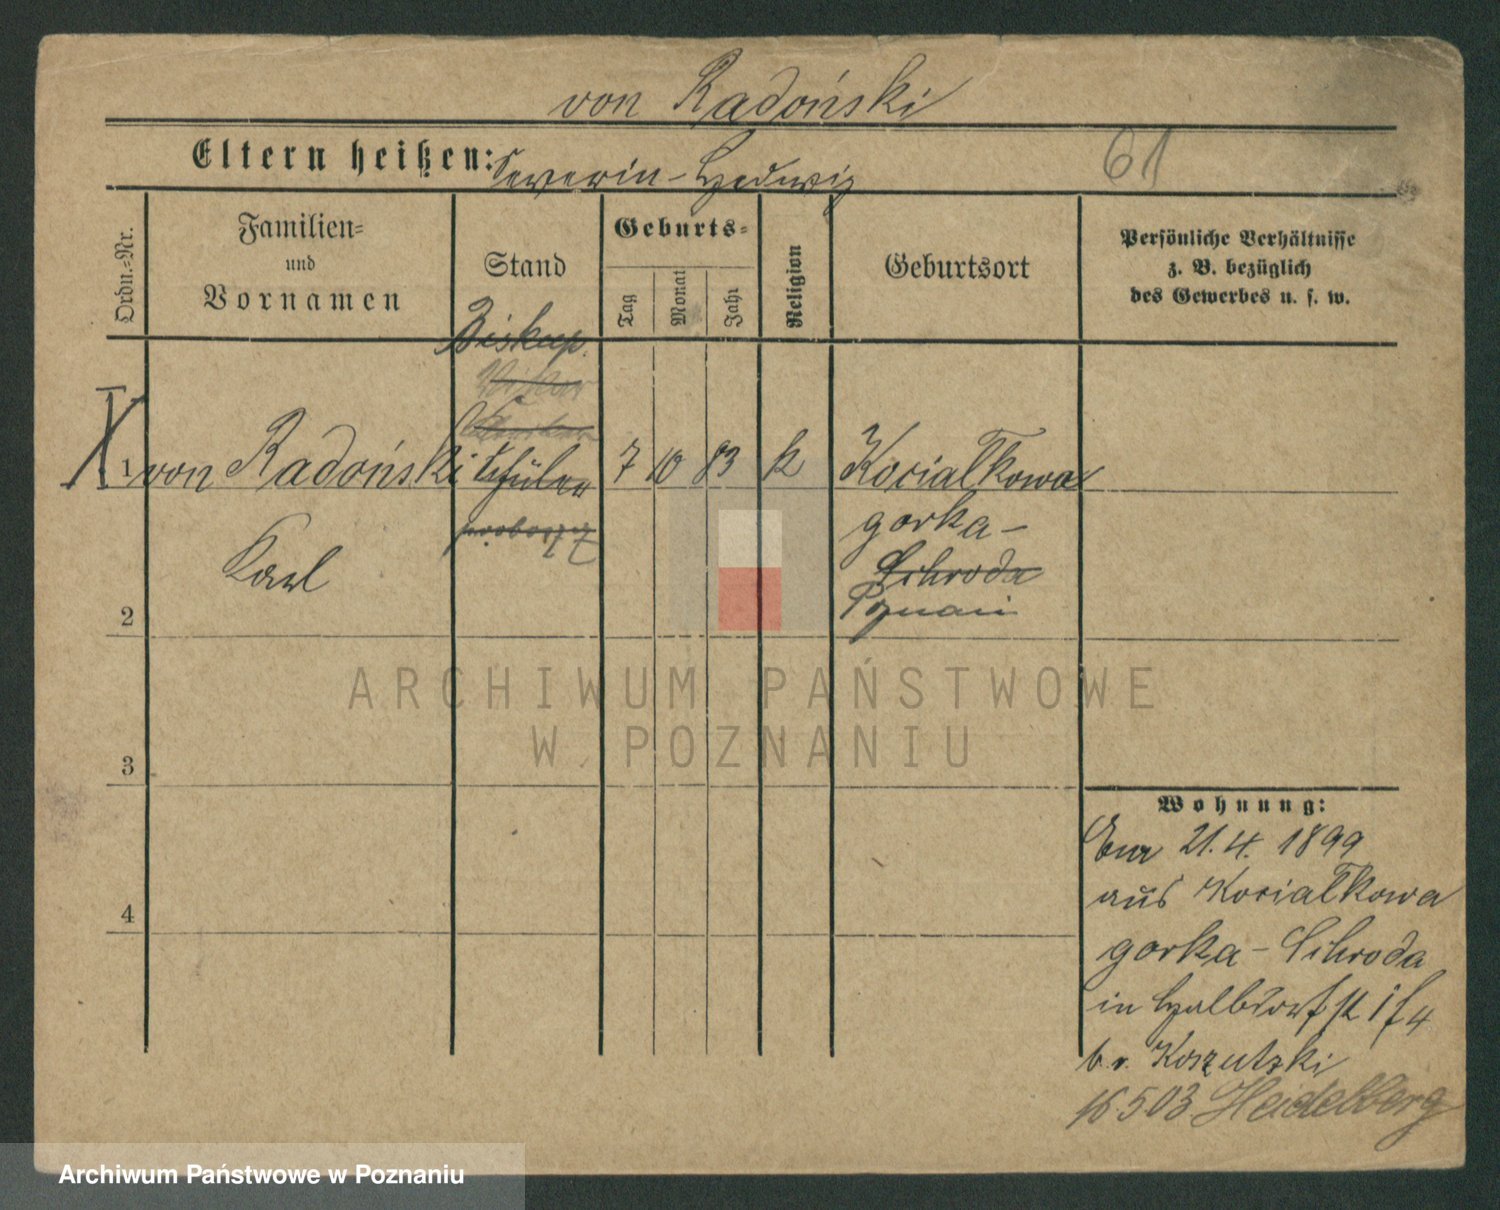 von Radoński
Eltern heißen: Severin - Hedwig
61
Ordn.-Nr.
Familien-
und
Vornamen
Stand
Geburts-
Tag
Monat
Jahr
Religion
Geburtsort
Persönliche Verhältnisse
z. B. bezüglich
des Gewerbes u. s. w.
Biskup
Vikar
1 von Radoński Schüler 7 10 83 k Kocialkowa
gorka -
Karl
Schroda
Poznań
2
3
4
ARCHIWUM PAŃSTWOWE
W POZNANIU
Wohnung:
21.4. 1899
aus Kocialkowa
gorka - Schroda
in Halbdorfst
b. v. Koszutski
16.5.03 Heidelberg
Archiwum Państwowe w Poznaniu